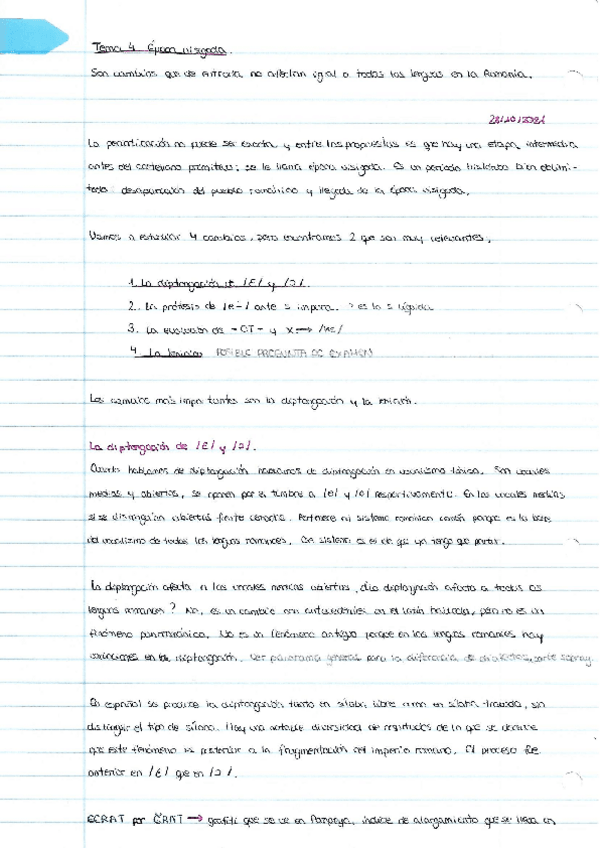 Tema 4 Época visigoda.
Son cambios que de entrada no afectan igual a todas las lenguas en la Romania.
28/10/2021
La periodización no puede ser exacta y entre las propuestas es que hay una etapa intermedia
antes del castellano primitivo; se le llama época visigoda. Es un período histórico bien delimi-
tado: desaparición del pueblo románico y llegada de la época visigoda.
Vamos a estudiar 4 cambios, pero encontramos 2 que son muy relevantes.
1. La diptongación de /E/ y /Ɔ/.
2. La prótesis de /e-/ ante s impura. → es la s líquida
3. La evolución de -CT- y X →
4. La lenición POSIBLE PREGUNTA DE EXAMEN
Los cambios más importantes son la diptongación y la lenición.
La diptongación de /E/ y /Ɔ/.
Cuando hablamos de diptongación hablamos de diptongación en vocalismo tónico. Son vocales
medias y abiertas, se oponen por el timbre a /e/ y /o/ respectivamente. En las vocales medias
sí se distinguían abiertas frente cerradas. Pertenece al sistema románico común porque es la base
del vocalismo de todas las lenguas romances. Ese sistema es el de que yo tengo que partir.
La diptongación afecta a las vocales medias abiertas, ¿la diptongación afecta a todas las
lenguas romances? No, es un cambio con antecedentes en el latín hablado, pero no es un
fenómeno panrománico. No es un fenómeno antiguo porque en las lenguas romances hay
variaciones en la diptongación. Ver panorama general para la diferencia de dialectos,
En español se produce la diptongación tanto en sílaba libre como en sílaba trabada, sin
distinguir el tipo de sílaba. Hay una notable diversidad de resultados de lo que se deduce
que este fenómeno es posterior a la fragmentación del imperio romano. El proceso fue
anterior en /E/ que en /Ɔ/.
ECRAT por ĔRAT → grafiti que se ve en Pompeya, índice de alargamiento que se lleva en